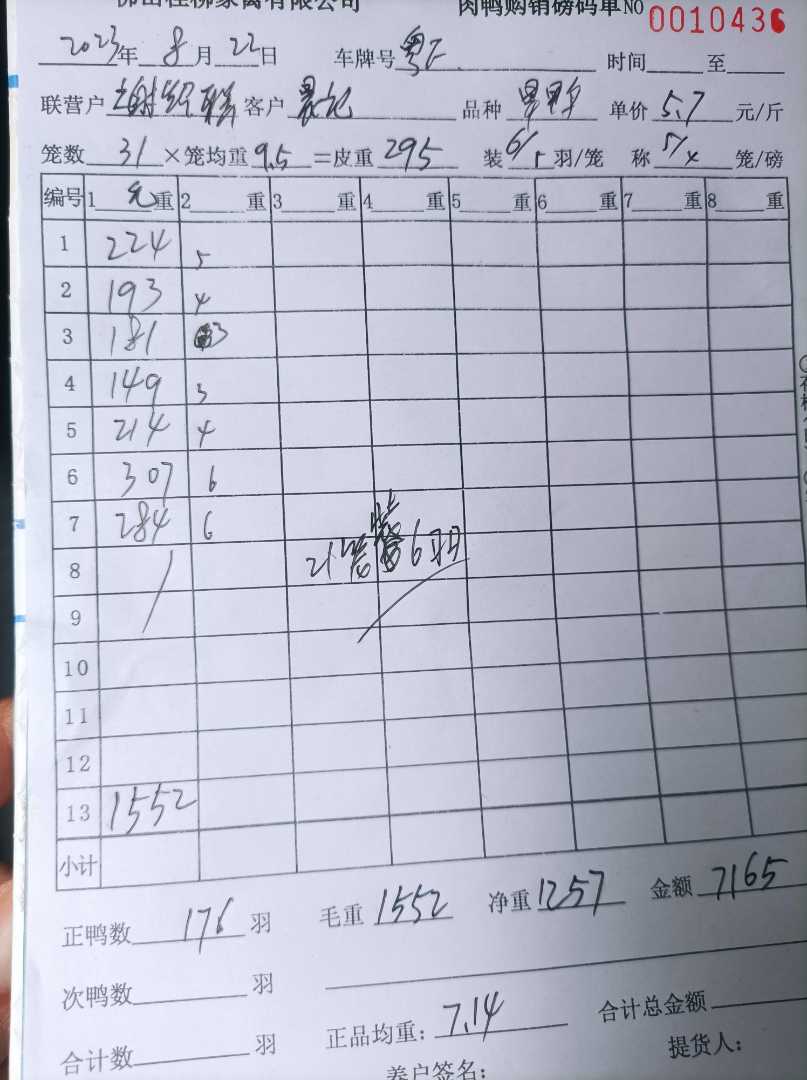 佛山桂柳家禽有限公司 肉鸭购销磅码单 NO 0010436
2023年 8月 22日 车牌号 粤E 时间 至
联营户 客户 晨记 品种 单价 5.7 元/斤
笼数 31 ×笼均重 9.5 =皮重 295 装 6/5 羽/笼 称 5/4 笼/磅
编号 1 重 2 重 3 重 4 重 5 重 6 重 7 重 8 重
1 224 5
2 193 4
3 181 3
4 149 3
5 214 4
6 307 6
7 284 6
8 21 6羽
9
10
11
12
13 1552
小计
正鸭数 176 羽 毛重 1552 净重 1257 金额 7165
次鸭数 羽
合计数 羽 正品均重: 7.14 合计总金额
养户签名: 提货人: